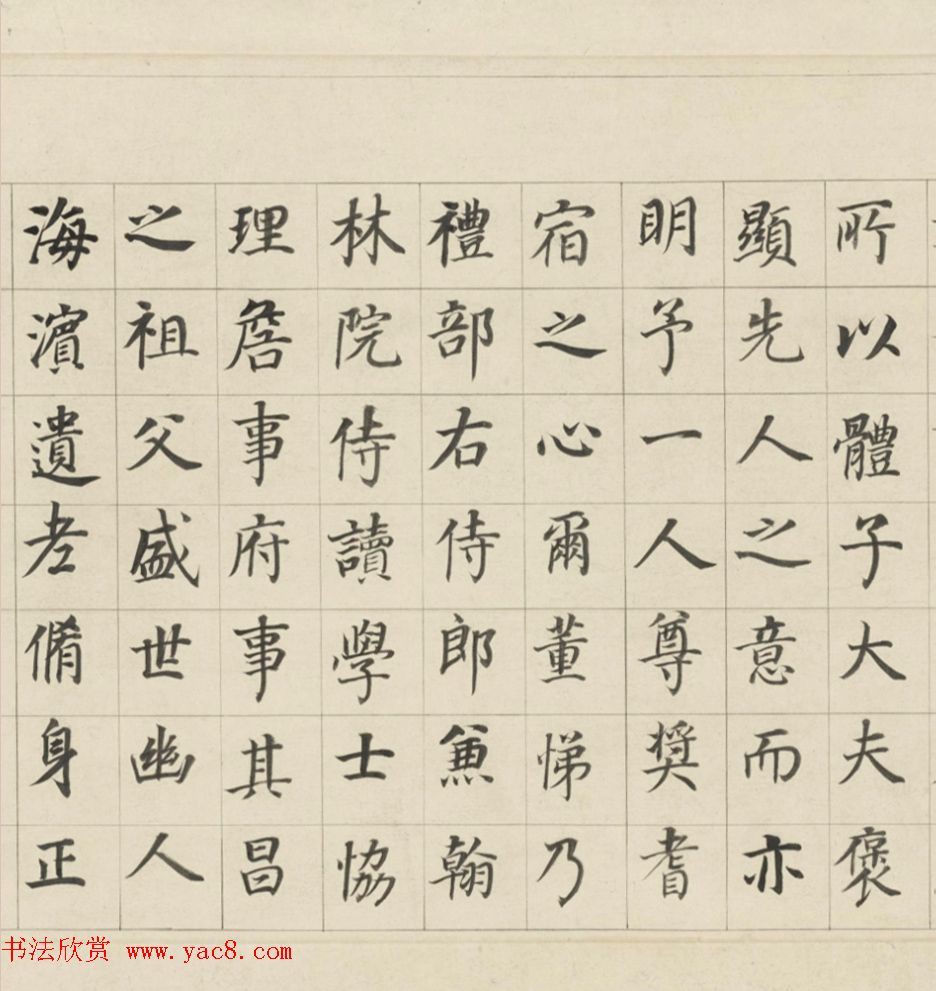 所以體子大夫褒
顯先人之意而亦
明予一人尊奨耆
宿之心爾董悌乃
禮部右侍郎兼翰
林院侍讀學士協
理詹事府事其昌
之祖父盛世幽人
海濱遺老脩身正
书法欣赏 www.yac8.com